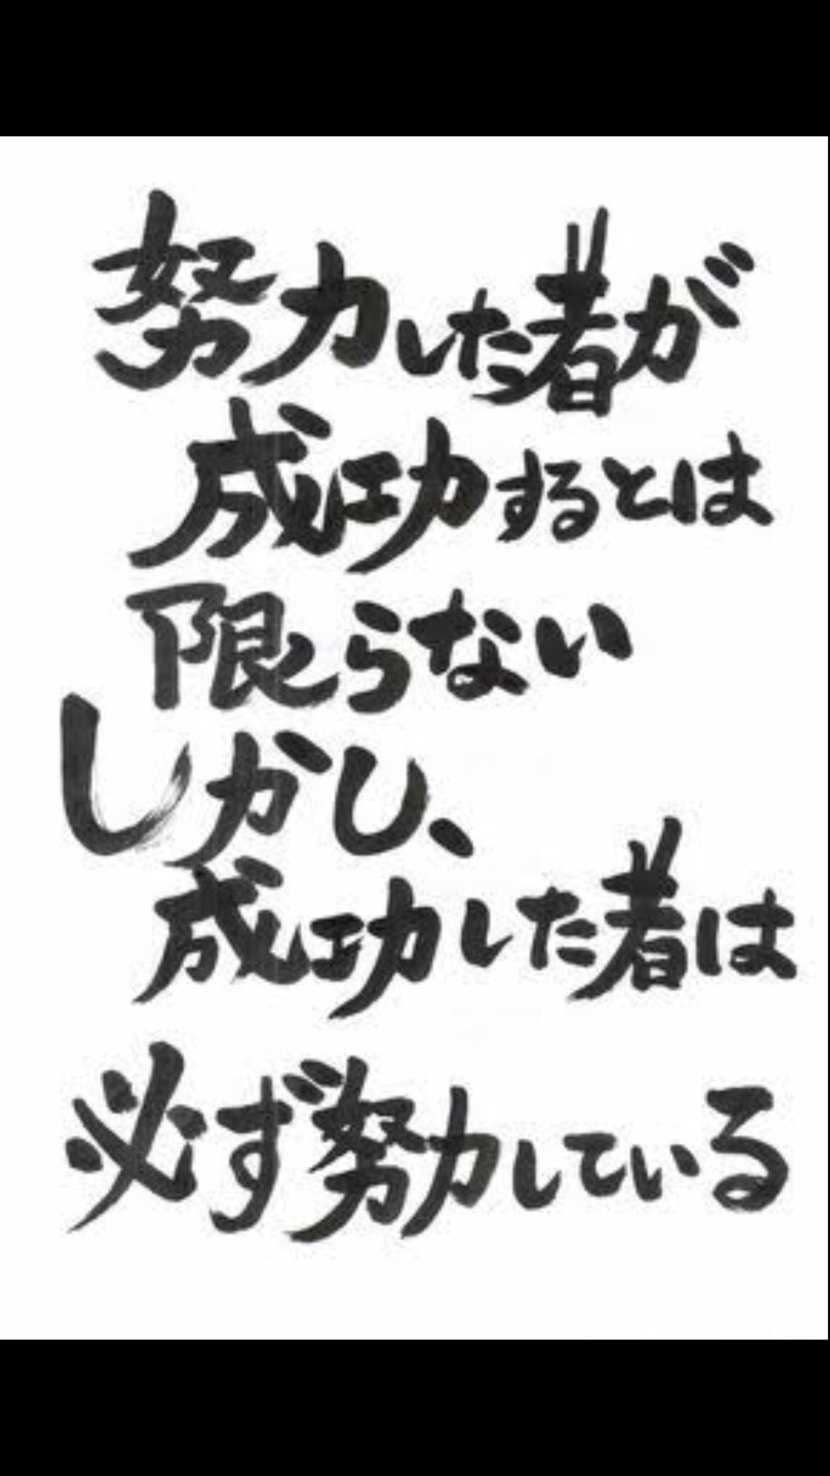 努力した者が
成功するとは
限らない
しかし、
成功した者は
必ず努力している